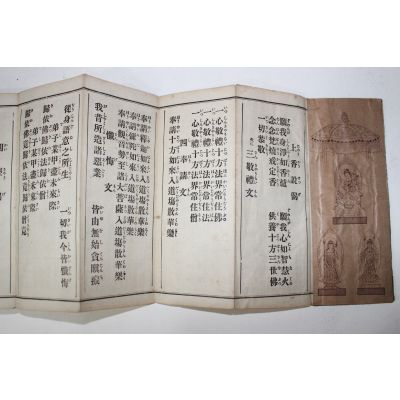 上香設偈
願我身淨如香爐 願我心如智慧火
念念焚燒戒定香 供養十方三世佛
一切恭敬 三敬禮文
一心敬禮十方法界常住佛
一心敬禮十方法界常住法
一心敬禮十方法界常住僧
四奉請文
奉請十方如來入道場散華樂
奉請釋迦如來入道場散華樂
奉請彌陀如來入道場散華樂
奉請觀音勢至諸大菩薩入道場散華樂
懺悔文
我昔所造諸惡業 皆由無始貪瞋癡
從身語意之所生 一切我今皆懺悔
弟子某甲盡未來際
歸依佛歸依法歸依僧
弟子某甲盡未來際
歸依佛竟歸依法竟歸依僧竟